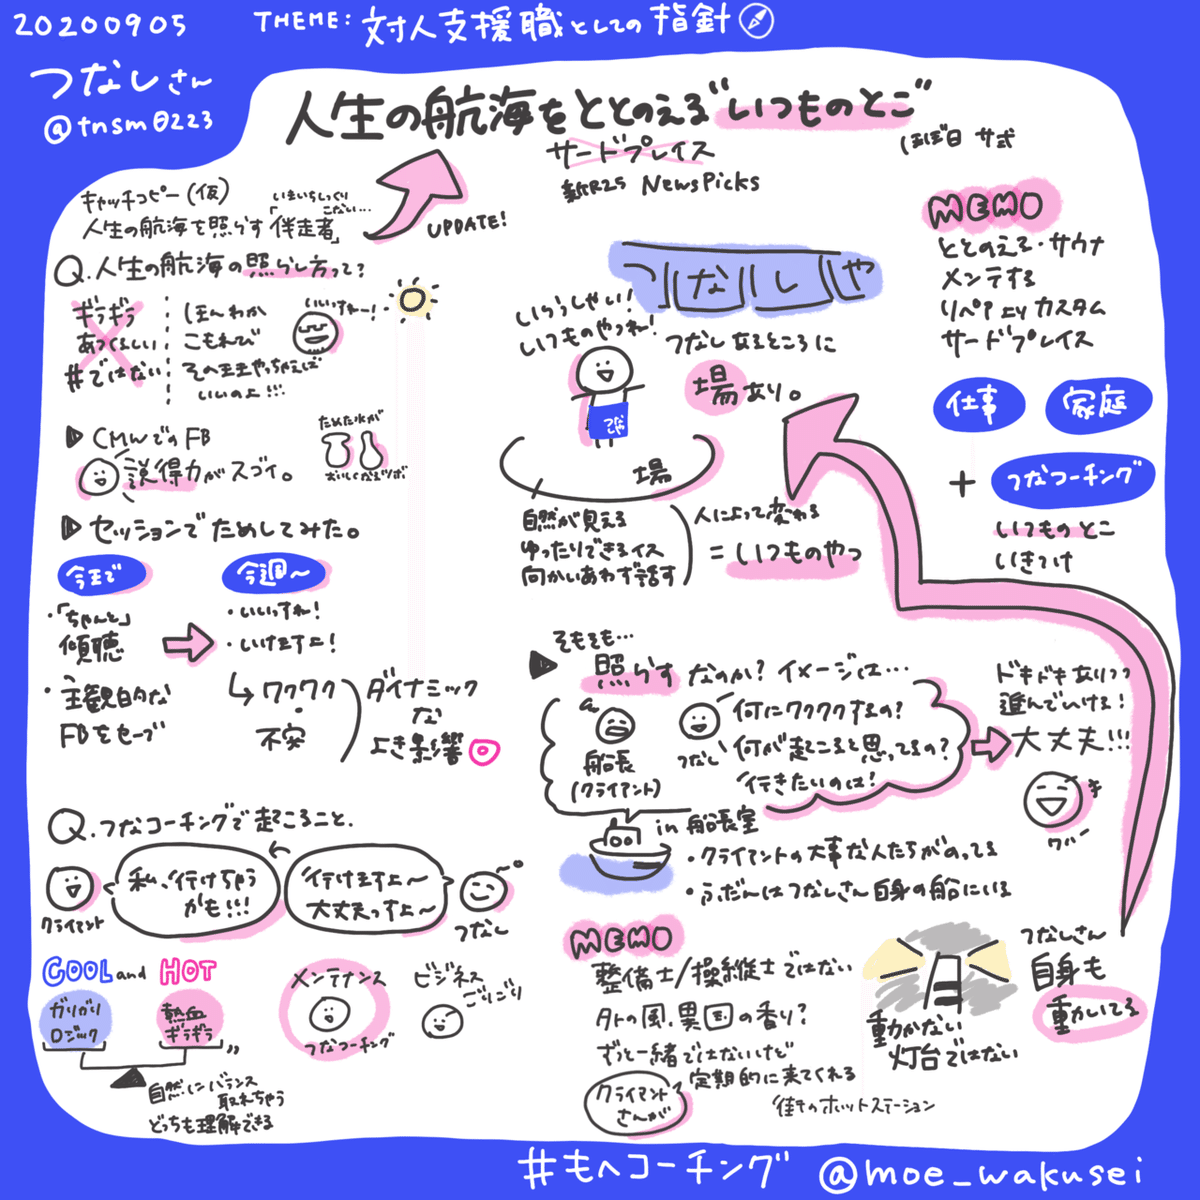 20200905
THEME: 対人支援職としての指針
つなしさん
@tnsm0223
人生の航海をととのえる"いつものとこ"
サードプレイス
新R25 NewsPicks
ほぼ日 サ式
キャッチコピー(仮)
いまいちしっくり
こない…
人生の航海を照らす「伴走者」
UPDATE!
Q.人生の航海の照らし方って?
ギラギラ
あつくるしい
#ではない
ほんわか
こもれび
そのままやっちゃえば
いいのよ!!!
いいっすねー!
▶CMWでのFB
説得力がスゴイ。
ためた水が
おいしくなるツボ
▶セッションでためしてみた。
今まで
・「ちゃんと」
傾聴
・主観的な
FBをセーブ
今週〜
・いいっすね!
・いけますよ!
↳ワクワク
・
不安
ダイナミック
な
よき影響
Q.つなコーチングで起こること.
クライアント
私、行けちゃう
かも!!!
行けますよ〜
大丈夫っすよ〜
つなし
COOL and HOT
ガリガリ
ロジック
熱血
ギラギラ
自然にバランス
取れちゃう
どっちも理解できる
メンテナンス
つなコーチング
ビジネス
ごりごり
つなしや
いらっしゃい!
いつものやつね!
つなしあるところに
場あり。
つなしや
場
自然が見える
ゆったりできるイス
向かいあわず話す
人によって変わる
=いつものやつ
MEMO
ととのえる・サウナ
メンテする
リペアよりカスタム
サードプレイス
仕事
家庭
+
つなコーチング
いつものとこ
いきつけ
そもそも…
▶照らすなのか?イメージは…
船長
(クライアント)
つなし
何にワクワクするの?
何が起こると思ってるの?
行きたいのは!
ドキドキありつつ
進んでいける!
大丈夫!!!
in 船長室
・クライアントの大事な人たちがのってる
・ふだんはつなしさん自身の船にいる
MEMO
整備士/操縦士ではない
外の風、異国の香り?
ずっと一緒ではないけど
定期的に来てくれる
クライアント
さんが
街中のホットステーション
動かない
灯台ではない
つなしさん
自身も
動いてる
#もへコーチング @moe_wakusei